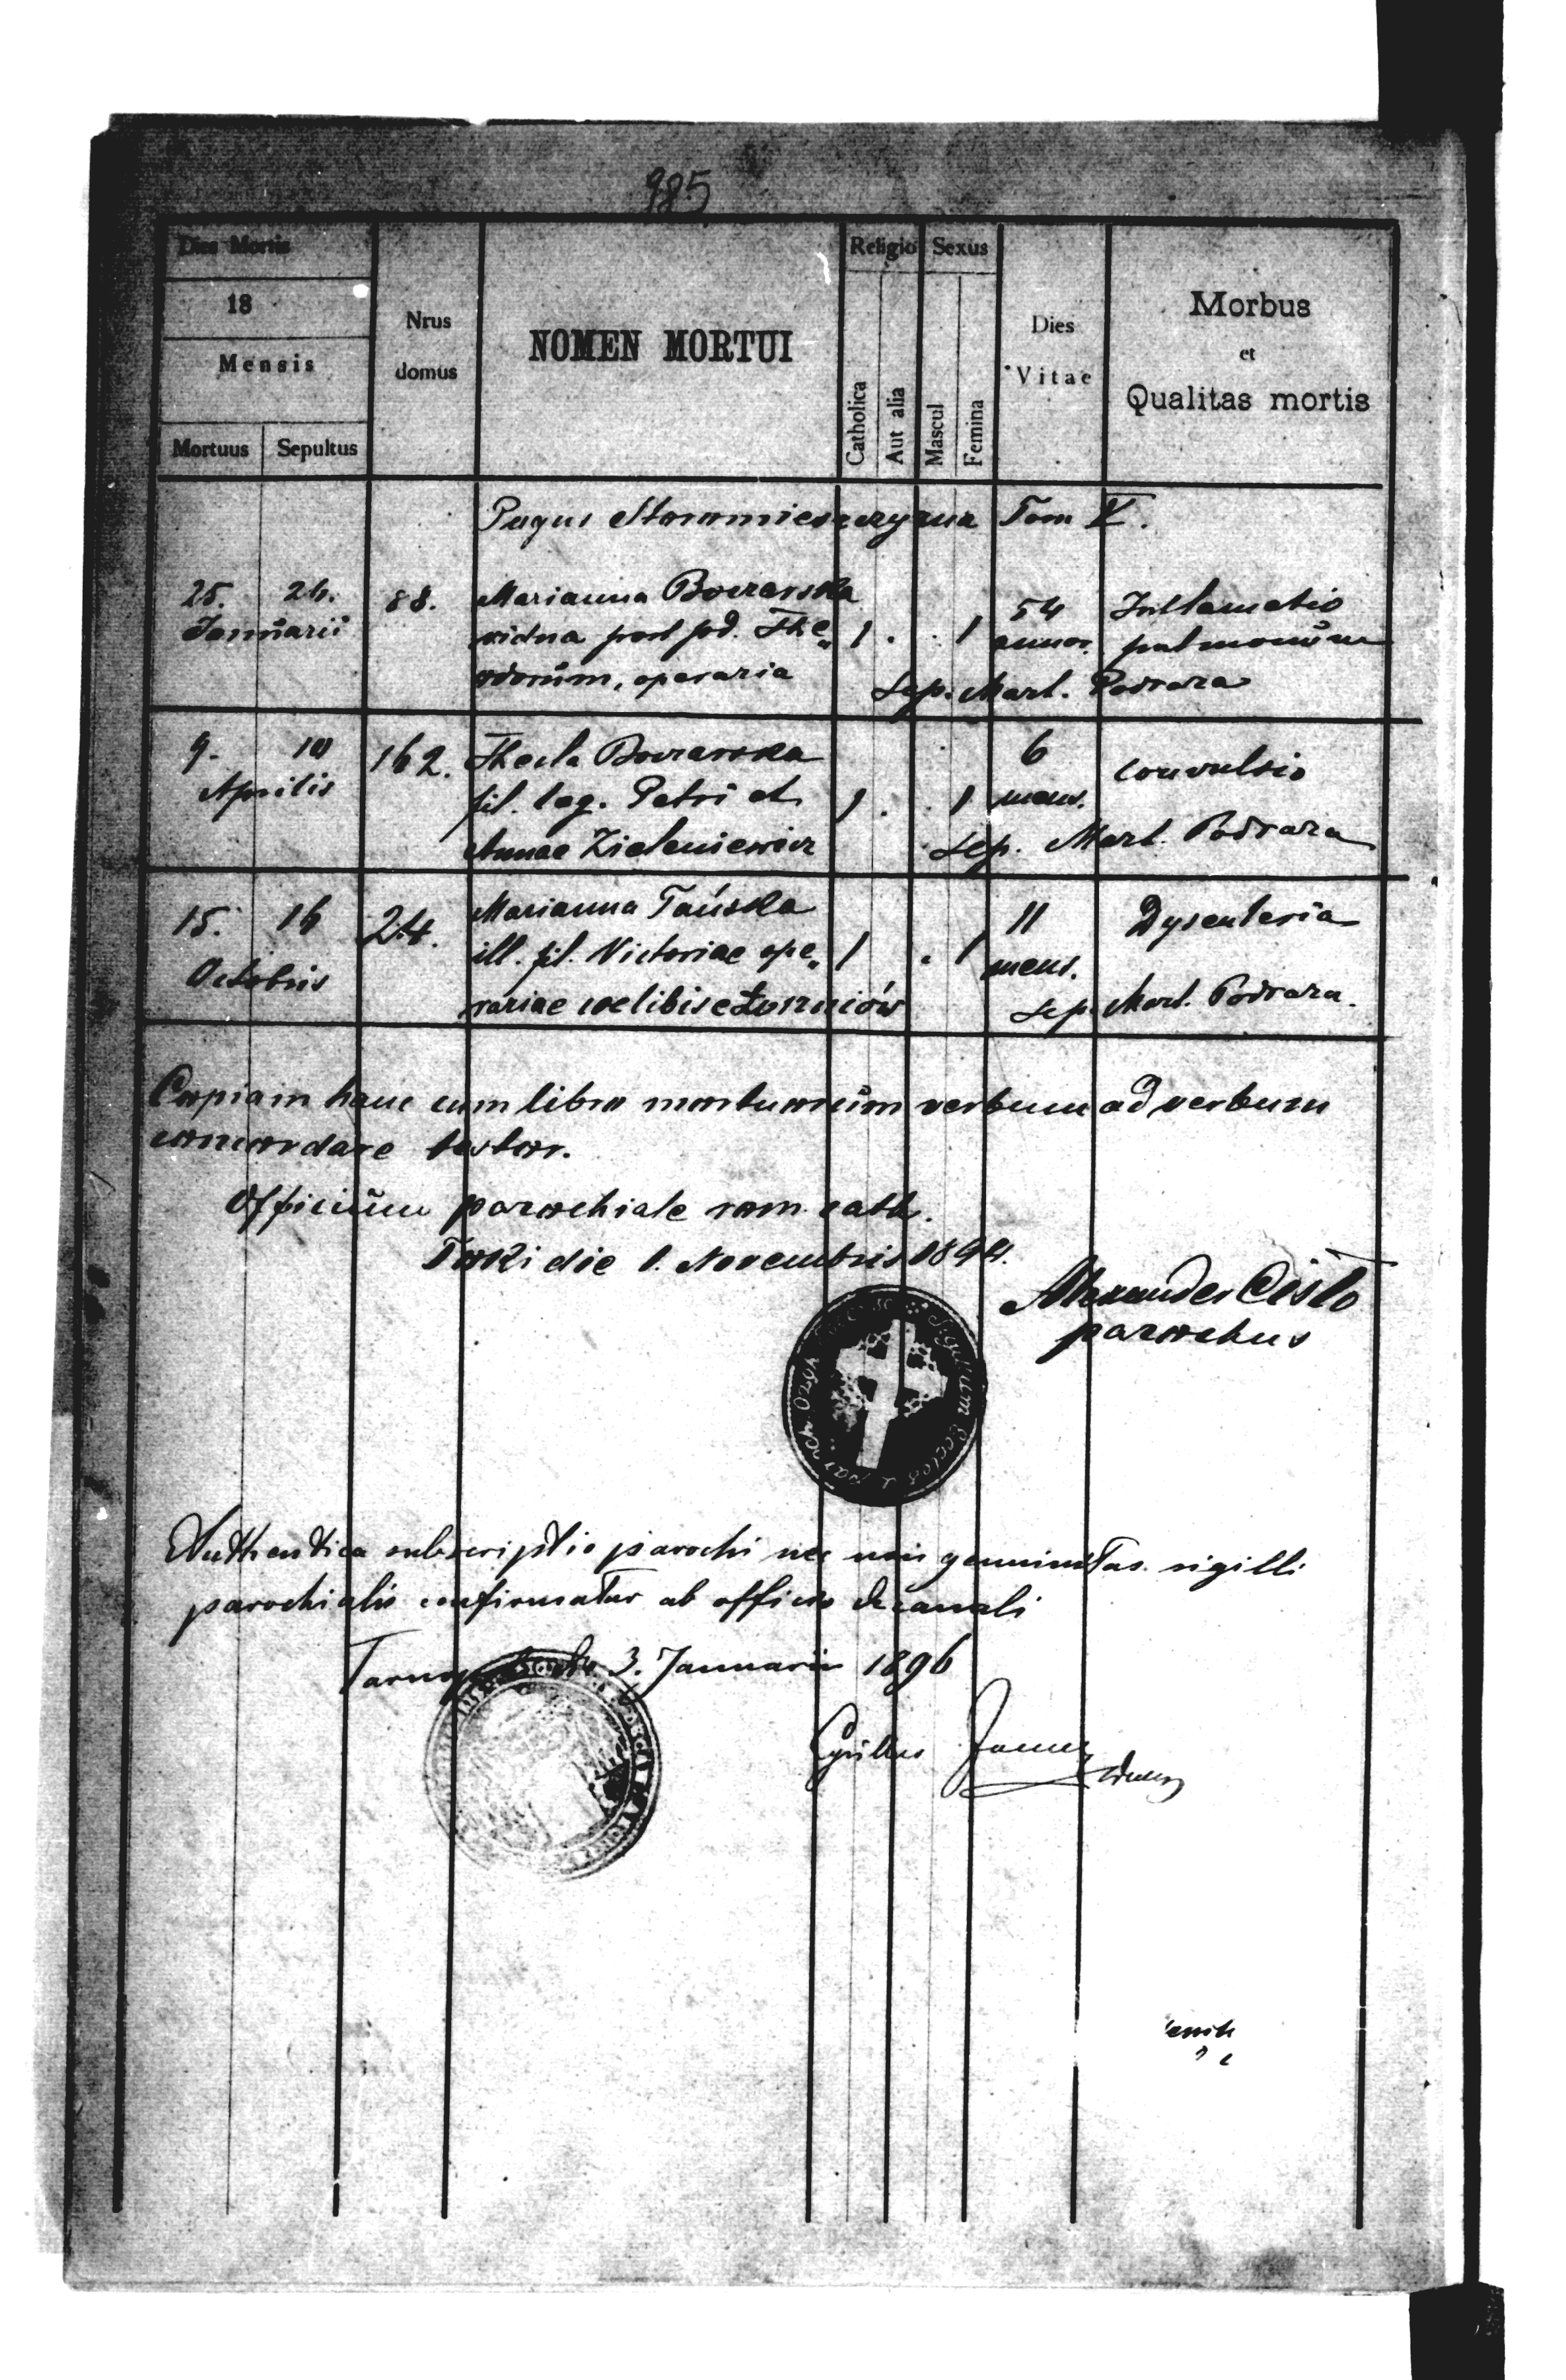 985
Dies Mortis
18
Mensis
Mortuus Sepultus
Nrus
domus
NOMEN MORTUI
Religio
Catholica
Aut alia
Sexus
Mascul
Femina
Dies
Vitae
Morbus
et
Qualitas mortis
Pagus Tom V.
25. 26. 88. Marianna Bourarska 54 Inflamatio
Januarii vidua post The„ 1 . . 1 annor. pulmonum
odorum, operaria Sep. Mart. Podraza
9. 10 162. Thecla Bourarska 6 convulsio
Aprilis fil. leg. Petri et 1 . . 1 mens.
Annae Zieleniewicz Sep. Mart. Podraza
15. 16 24. Marianna Tańska 11 Dysenteria
Octobris ill. fil. Victoriae ope„ 1 . 1 mens.
rariae coelibis e Sep. Mart. Podraza.
Copiam hanc cum libro mortuorum verbum ad verbum
concordare testor.
Officium parochiale rom. cath.
die 1. Novembris 1894.
Alexander Cisło
parochus
Sigillum Eccles
Authentica subscriptio parochi nec non genuinitas sigilli
parochialis confirmatur ab officio decanali
3. Januarii 1896
Cyrillus